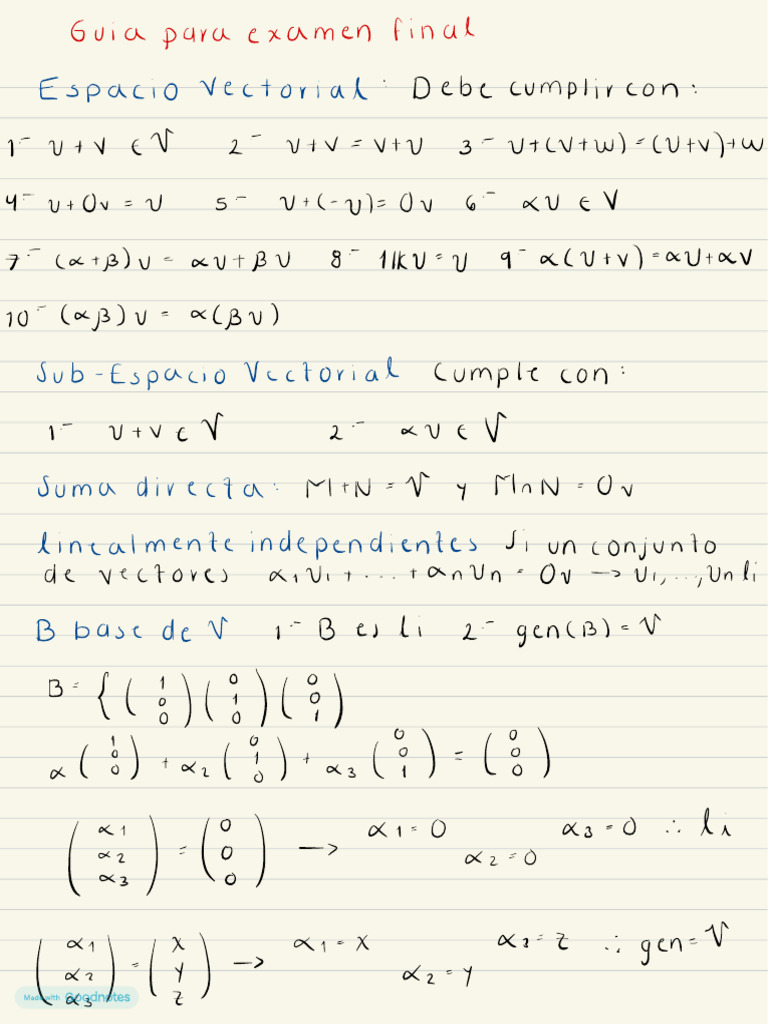 Guia para examen final
Espacio Vectorial: Debe cumplir con:
1- u+v ∈ V 2- u+v = v+u 3- u+(v+w) = (u+v)+w
4- u+0v = u 5- u+(-u)= 0v 6- αu ∈ V
7- (α+β)u = αu+βu 8- 1𝕂u = u 9- α(u+v) = αu+αv
10- (αβ)u = α(βu)
Sub-Espacio Vectorial Cumple con:
1- u+v ∈ V 2- αu ∈ V
Suma directa: M+N = V y M∩N = 0v
linealmente independientes Si un conjunto
de vectores α1u1 + ... + αnun = 0v → u1,...,un li
B base de V 1- B es li 2- gen(B) = V
B = { (1 0 0) (0 1 0) (0 0 1)
α (1 0 0) + α2 (0 1 0) + α3 (0 0 1) = (0 0 0)
(α1 α2 α3) = (0 0 0) → α1 = 0 α2 = 0 α3 = 0 ∴ li
(α1 α2 α3) = (x y z) → α1 = x α2 = y α3 = z ∴ gen = V
Made with Goodnotes